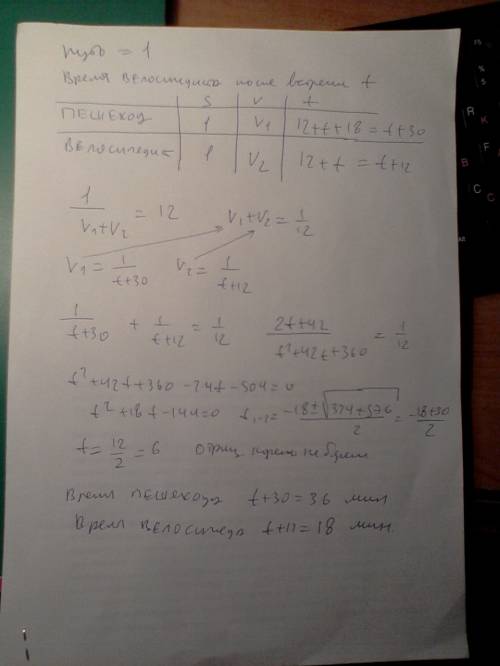 путь = 1
Время велосипедиста после встречи t
S V t
ПЕШЕХОД 1 V₁ 12+t+18 = t+30
Велосипедист 1 V₂ 12+t = t+12
1/(V₁+V₂) = 12 V₁+V₂ = 1/12
V₁ = 1/(t+30) V₂ = 1/(t+12)
1/(t+30) + 1/(t+12) = 1/12 (2t+42)/(t²+42t+360) = 1/12
t²+42t+360-24t-504=0
t²+18t-144=0 t₁,₂= (-18±√(324+576))/2 = (-18+30)/2
t = 12/2 = 6 отриц корень не берем
Время ПЕШЕХОДА t+30=36 мин
Время велосипеда t+12=18 мин.